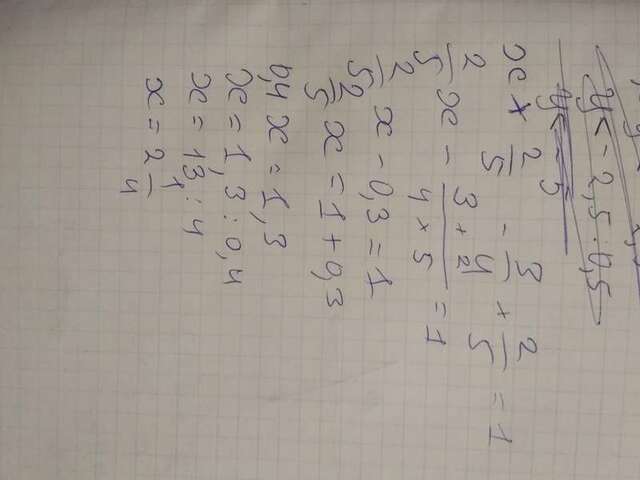 y < -2,5 : 0,5
y < -5
x * 2/5 - 3/4 * 2/5 = 1
2/5 x - 3*2/4*5 = 1
2/5 x - 0,3 = 1
2/5 x = 1 + 0,3
0,4x = 1,3
x = 1,3 : 0,4
x = 13 : 4
x = 2 1/4